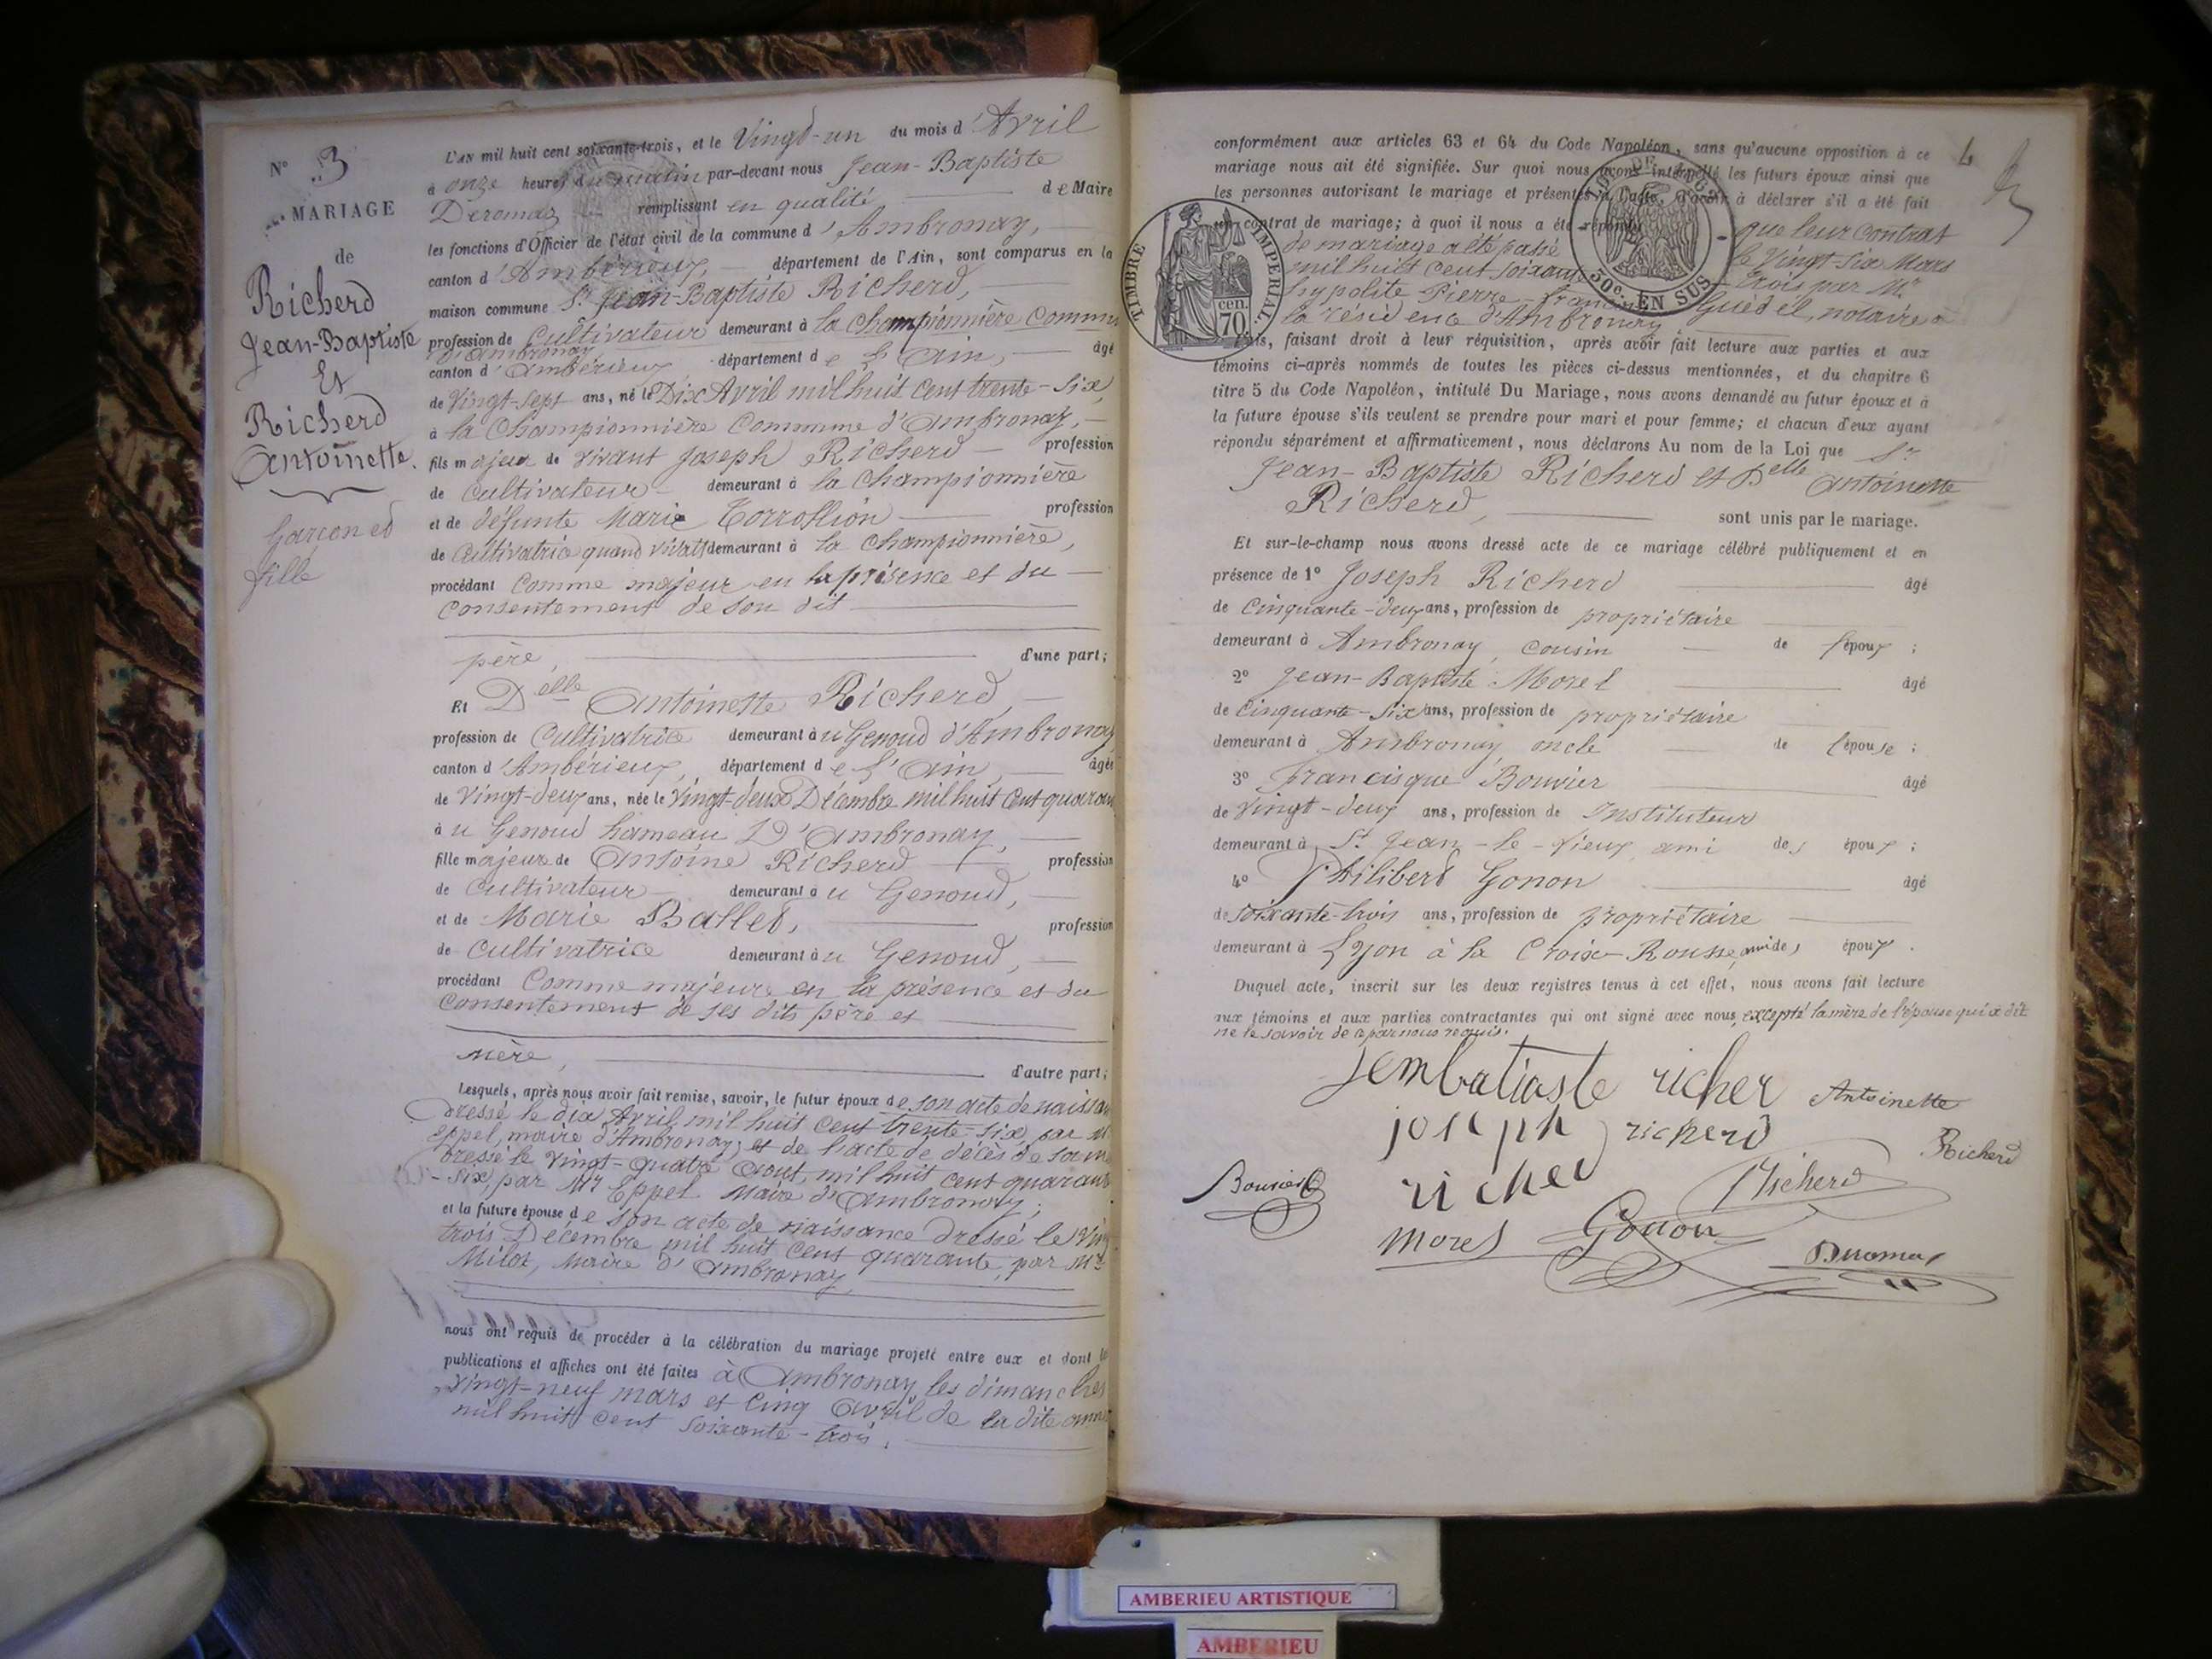 N° 3
MARIAGE
de
Richerd
Jean-Baptiste
Et
Richerd
Antoinette.
Garçon et
fille
L'AN mil huit cent soixante-trois, et le Vingt-un du mois d'Avril
à onze heures du matin par-devant nous Jean-Baptiste
remplissant en qualité de Maire
les fonctions d'Officier de l'état civil de la commune d'Ambronay,
canton d'Ambérieux, département de l'Ain, sont comparus en la
maison commune Sr Jean-Baptiste Richerd,
profession de Cultivateur demeurant à la Championnière Commune
d'Ambronay
canton d'Ambérieux, département de l'Ain, âgé
de Vingt-sept ans, né le Dix Avril mil huit cent trente-six,
à la Championnière Commune d'Ambronay,
fils majeur de vivant Joseph Richerd profession
de Cultivateur demeurant à la Championnière
et de défunte Marie profession
de Cultivatrice quand vivait demeurant à la Championnière,
procédant Comme majeur en la présence et du
Consentement de son dit
père, d'une part;
Et Delle Antoinette Richerd,
profession de Cultivatrice demeurant àu Genoud d'Ambronay
canton d'Ambérieux, département de l'Ain, âgée
de Vingt-deux ans, née le Vingt-deux Décembre mil huit Cent quaran
àu Genoud hameau D'Ambronay,
fille majeure de Antoine Richerd profession
de Cultivateur demeurant àu Genoud,
et de Marie Ballet, profession
de Cultivatrice demeurant àu Genoud,
procédant Comme majeure en la présence et du
Consentement de ses dits père et
mère, d'autre part;
Lesquels, après nous avoir fait remise, savoir, le futur époux de son acte de naissan
Dressé le dix Avril mil huit cent trente-six, par M
Eppel, maire d'Ambronay; et de l'acte de décès de sa m
Dressé le Vingt-quatre Aout, mil huit cent quarant
-six, par Mr Eppel Maire d'Ambronay;
et la future épouse de son acte de naissance Dressé le Vin
trois Décembre mil huit Cent quarante, par Mr
Milot, Maire d'Ambronay,
nous ont requis de procéder à la célébration du mariage projeté entre eux et dont les
publications et affiches ont été faites à Ambronay, les dimanches
Vingt-neuf mars et Cinq Avril de la dite année
mil huit cent soixante-trois,
4
conformément aux articles 63 et 64 du Code Napoléon, sans qu'aucune opposition à ce
mariage nous ait été signifiée. Sur quoi nous avons interpellé les futurs époux ainsi que
les personnes autorisant le mariage et présentes à l'acte, d'avoir à déclarer s'il a été fait
un contrat de mariage; à quoi il nous a été répondu que leur Contrat
de mariage a été passé le Vingt-Six Mars
mil huit Cent soixante trois par Mr
hypolite Pierre-francois Guédel, notaire à
la résidence d'Ambronay
TIMBRE IMPERIAL.
cen. 70
LOI DE 1862
50c. EN SUS
Puis, faisant droit à leur réquisition, après avoir fait lecture aux parties et aux
témoins ci-après nommés de toutes les pièces ci-dessus mentionnées, et du chapitre 6
titre 5 du Code Napoléon, intitulé Du Mariage, nous avons demandé au futur époux et à
la future épouse s'ils veulent se prendre pour mari et pour femme; et chacun d'eux ayant
répondu séparément et affirmativement, nous déclarons Au nom de la Loi que Sr
Jean-Baptiste Richerd et Delle Antoinette
Richerd, sont unis par le mariage.
Et sur-le-champ nous avons dressé acte de ce mariage célébré publiquement et en
présence de 1° Joseph Richerd âgé
de Cinquante-deux ans, profession de propriétaire
demeurant à Ambronay, cousin de l'époux;
2° Jean-Baptiste Morel âgé
de Cinquante-six ans, profession de propriétaire
demeurant à Ambronay, oncle de l'épouse;
3° francisque Bouvier âgé
de Vingt-deux ans, profession de Instituteur
demeurant à St Jean-le-Vieux, ami des époux;
4° Philibert Gonon âgé
de Soixante-trois ans, profession de propriétaire
demeurant à Lyon à la Croix-Rousse, ami des époux.
Duquel acte, inscrit sur les deux registres tenus à cet effet, nous avons fait lecture
aux témoins et aux parties contractantes qui ont signé avec nous, excepté la mère de l'épouse qui a dit
ne le savoir de ce par nous requis.
Jembatiaste richer Antoinette
joseph richerd Richerd
Bouvier richer Richerd
Morel Gonon
AMBERIEU ARTISTIQUE
AMBERIEU